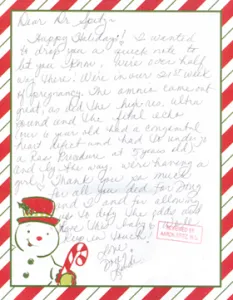 Dear Dr
Happy Holidays! I wanted
to drop you a quick note to
let you know we're over half
way there. We're in our 21st week
of pregnancy. The amnio came out
great, as did the high res. ultra
sound and the fetal echo
(our 6 year old had a congenital
heart defect and had to under
a Ross Procedure at 5 years old)
and by the way, we're having a
girl! Thank you so much
for all you did for
and I and for allowing
us to defy the odds and
have this baby. We'll
keep in touch!
Love,